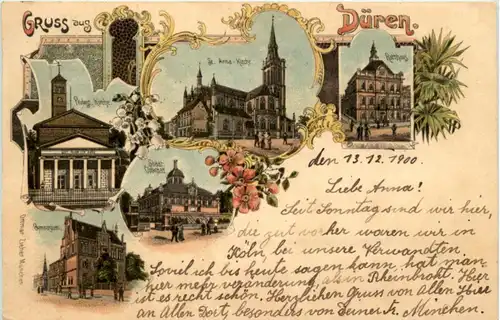 Gruss aus
Düren.
St. Anna-Kirche
Rathaus
Protest. Kirche
Gymnasium.
Ottmar Zieher, München
den 13.12.1900.
Liebe Anna!
Seit Sonntag sind wir hier,
die zeit vorher waren wir in
Köln, bei unsere Verwandten.
Soviel ich bis heute sagen kann, hat man
hier mehr veränderung, als in Rheinbrohl. Hier
ist es recht schön. Herzlichen Gruss von Allen Hier
an Allen Dort, besonders von Deiner Fr. München.